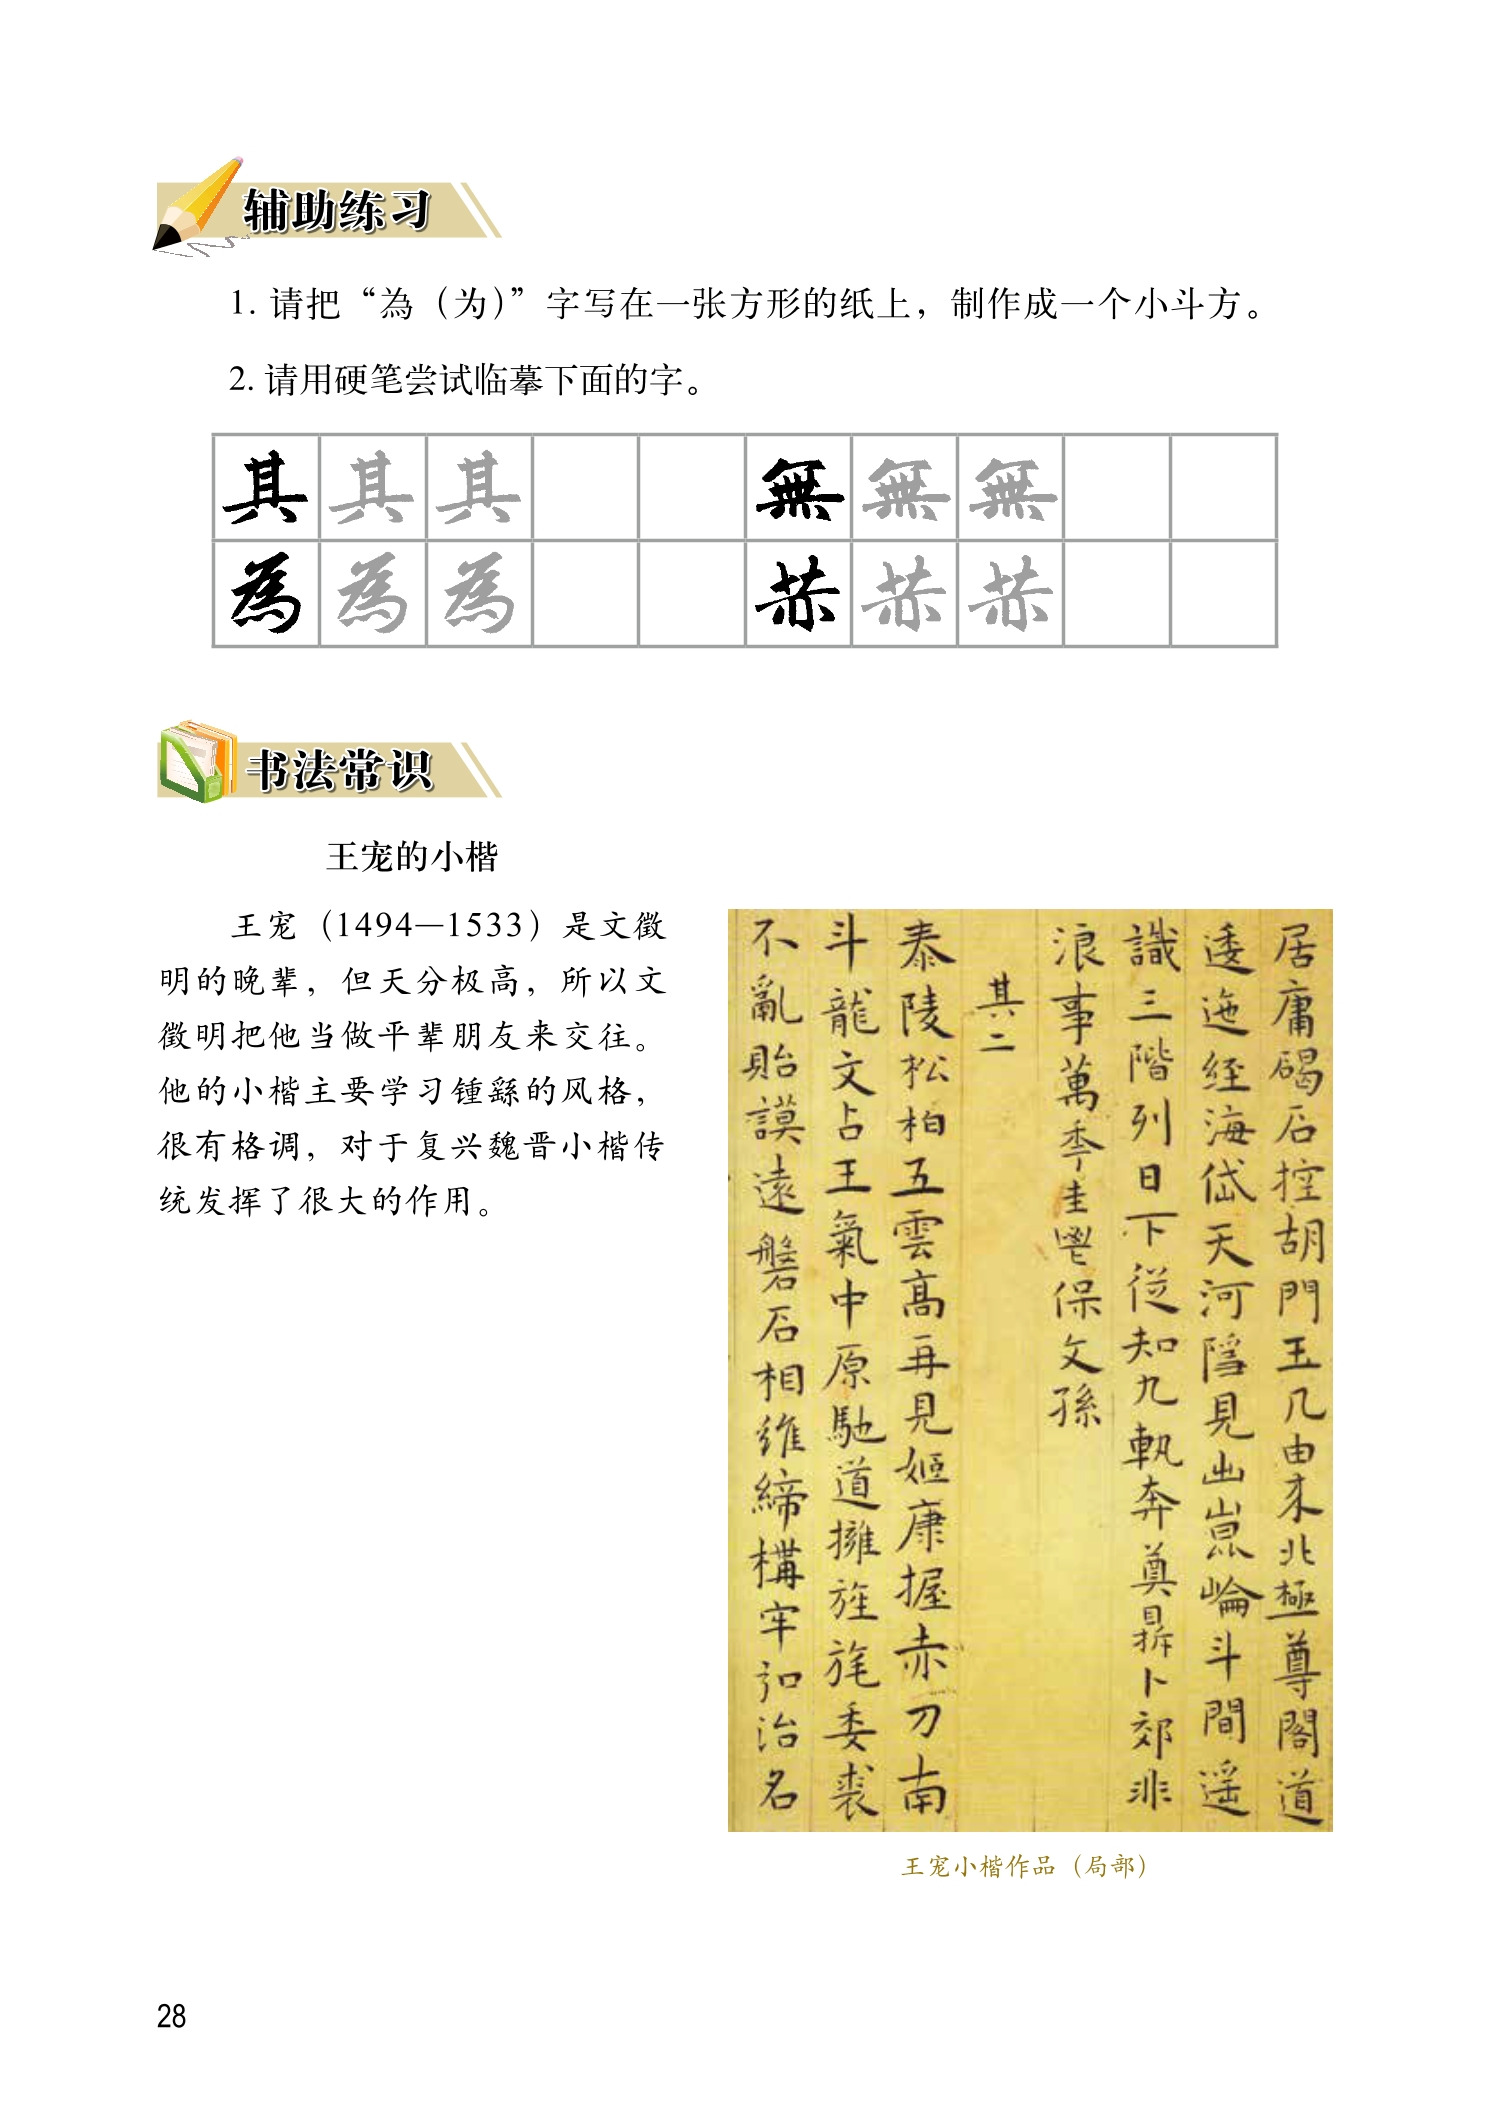 辅助练习
1. 请把“為（为）”字写在一张方形的纸上，制作成一个小斗方。
2. 请用硬笔尝试临摹下面的字。
其 其 其 無 無 無
為 為 為 恭 恭 恭
书法常识
王宠的小楷
王宠（1494—1533）是文徵
明的晚辈，但天分极高，所以文
徵明把他当做平辈朋友来交往。
他的小楷主要学习锺繇的风格，
很有格调，对于复兴魏晋小楷传
统发挥了很大的作用。
居庸碣石控胡門玉几由来北極尊閣道
逶迤經海岱天河隱見出崑崙斗間遥
識三階列日下從知九軌奔奠鼎卜郊非
浪事萬季圭鬯保文孫
其二
泰陵松柏五雲高再見姬康握赤刀南
斗龍文占王氣中原馳道擁旌旄委裘
不亂貽謨遠磐石相維締構牢訒治名
王宠小楷作品（局部）
28